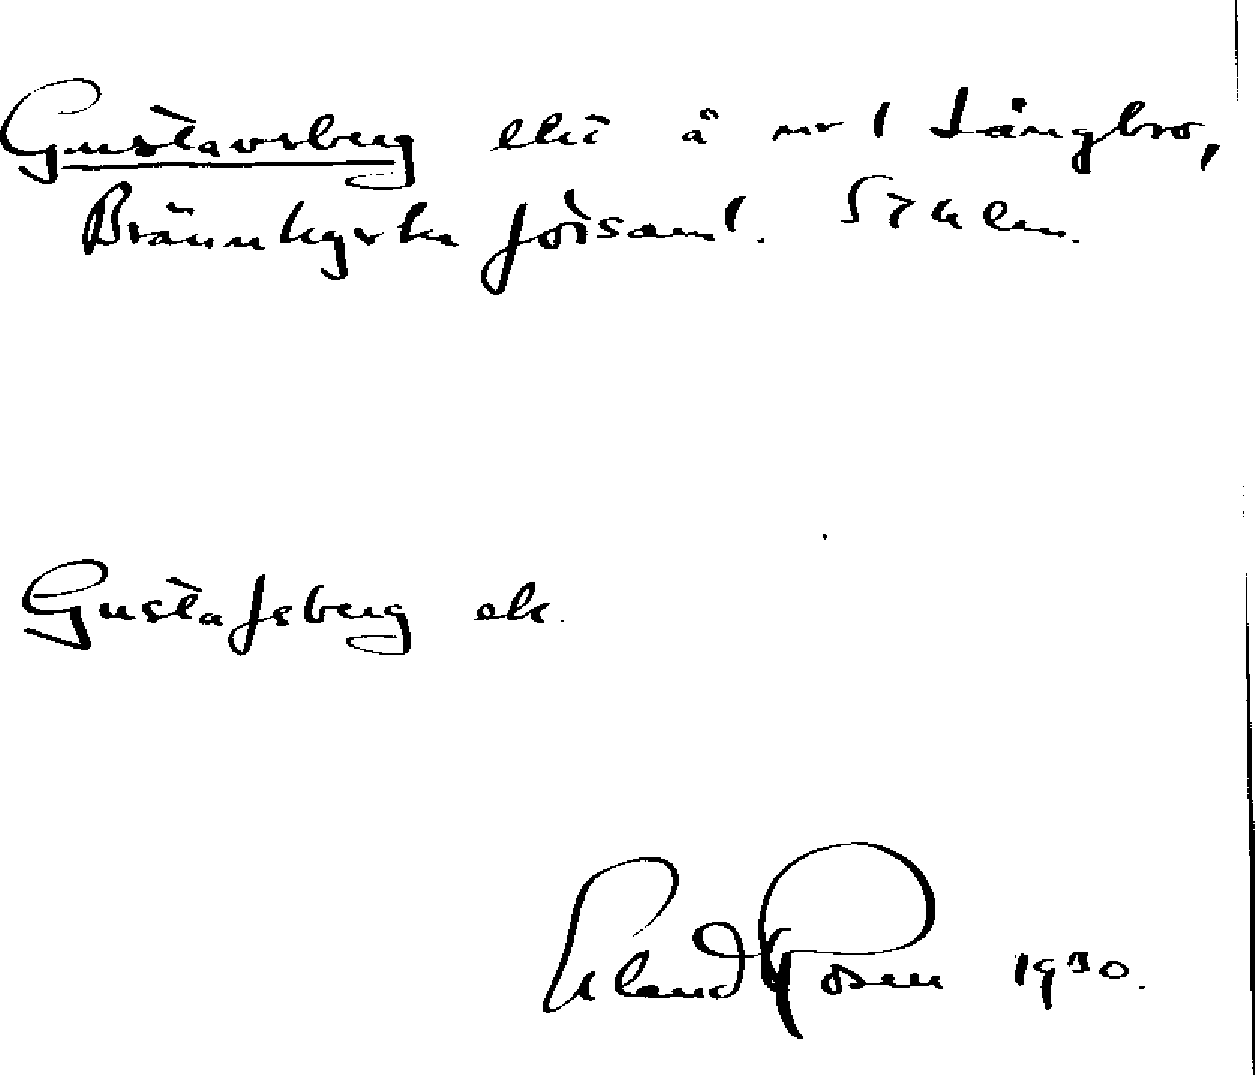 Gustavsberg lht å nr 1 Långbro,
Brännkyrka församl. Sthlm.
Gustafsberg ek.
Erland Rosen 1930.